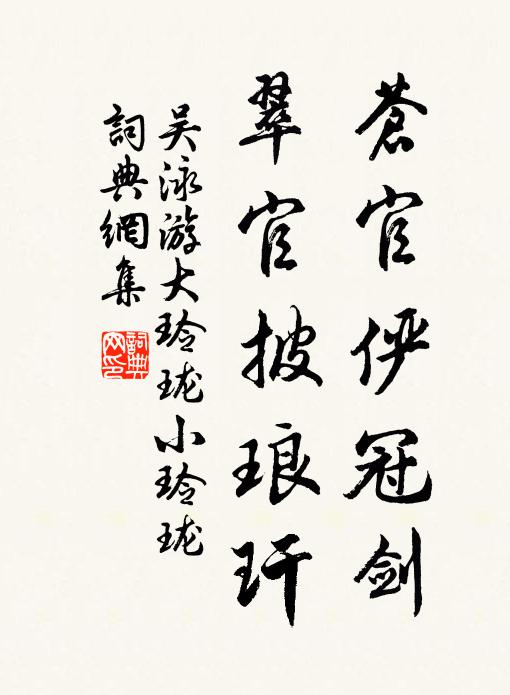 蒼官俨冠劍
翠官披琅玕
吴泳游大玲珑小玲珑
詞典網集
詞典网印